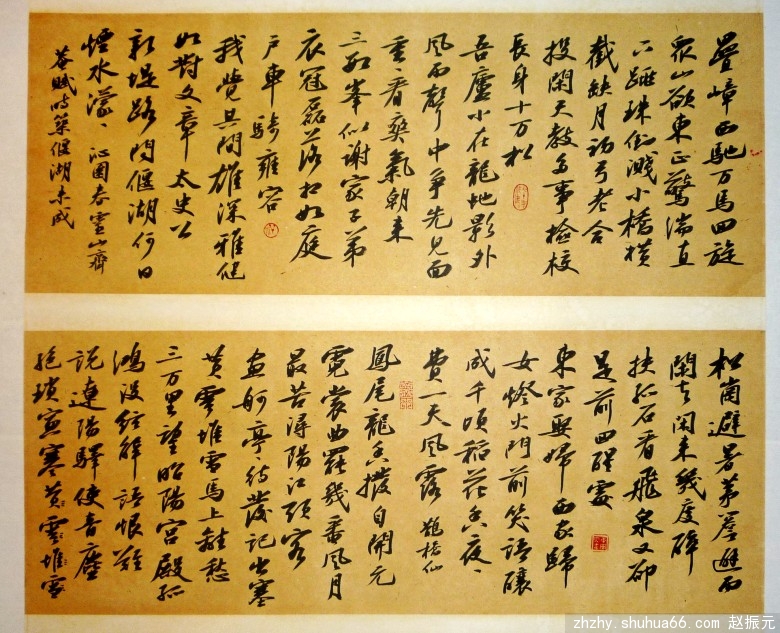 疊嶂西馳万馬回旋
眾山欲東正驚湍直
下跳珠倒濺小橋橫
截缺月初弓老合
投閑天教多事檢校
長身十万松
吾廬小在龍蛇影外
風雨聲中爭先見面
重重看爽氣朝來
三數峯似謝家子弟
衣冠磊落相如庭
户車騎雍容
我覺其間雄深雅健
如對文章太史公
新堤路問偃湖何日
煙水濛濛 沁園春靈山齊
菴賦時築偃湖未成
松崗避暑茅簷避雨
閑去閑來幾度醉
扶孤石看飛泉又卻
是前回醒處
東家娶婦西家歸
女燈火門前笑語釀
成千頃稻花香夜夜
費一天風露 鵲橋仙
鳳尾龍香撥自開元
霓裳曲罷幾番風月
最苦潯陽江頭客
画舸亭待發記出塞
黃雲堆雪馬上離愁
三万里望昭陽宮殿孤
鴻沒絃解語恨難
說遼陽驛使音塵
絕瑣窗寒黃雲堆雪
zhzhy.shuhua66.com 赵振元